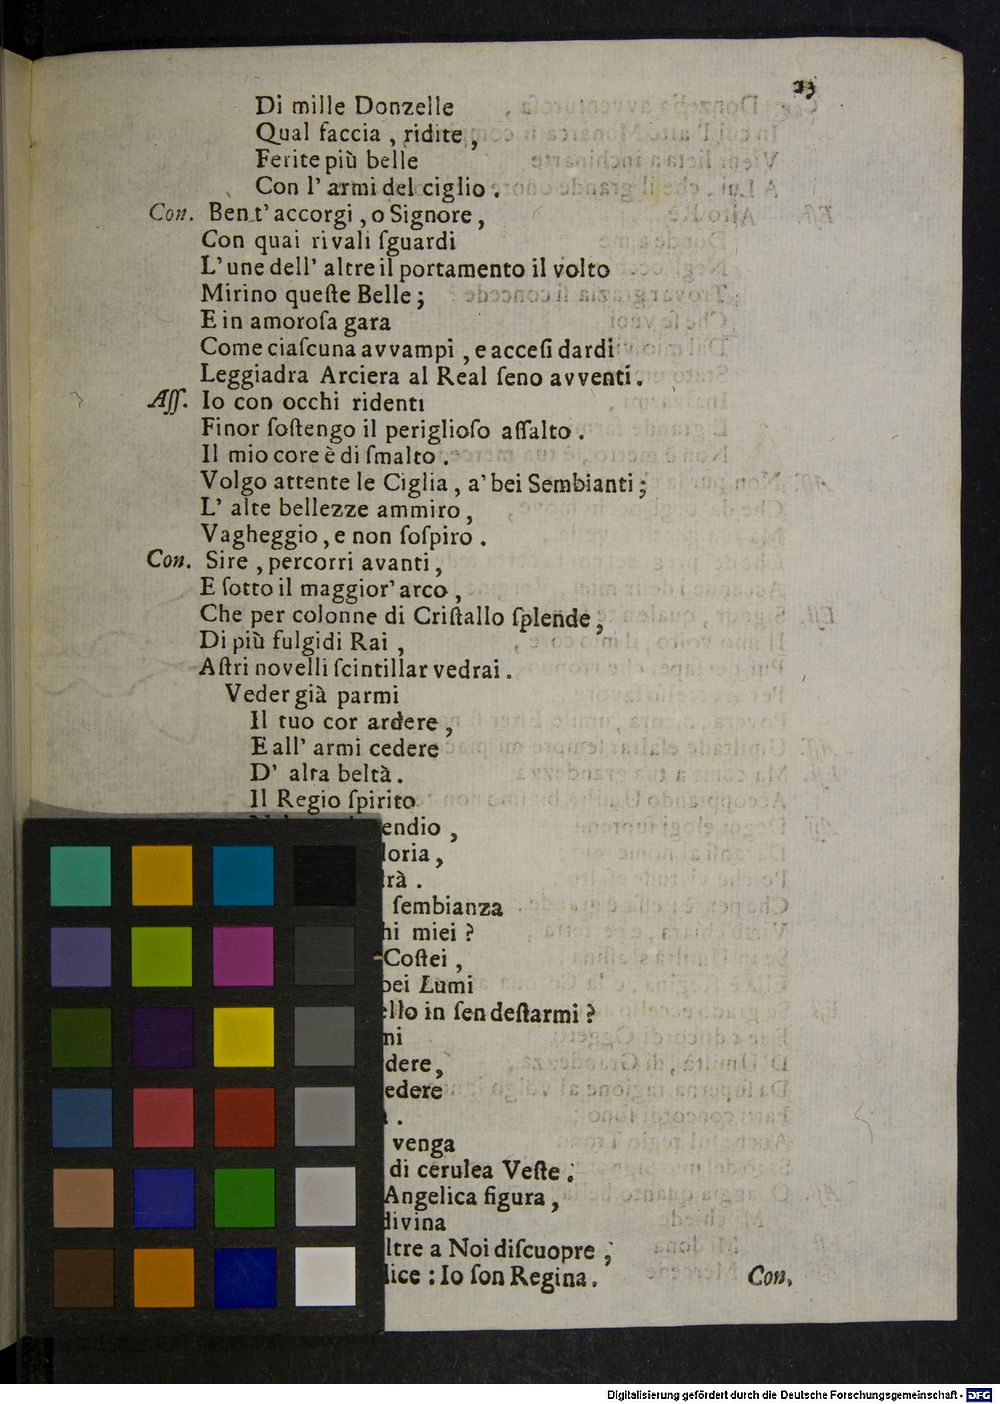 23
Di mille Donzelle
Qual faccia , ridite ,
Ferite più belle
Con l' armi del ciglio .
Con. Ben t' accorgi , o Signore ,
Con quai rivali ſguardi
L' une dell' altre il portamento il volto
Mirino queſte Belle ;
E in amoroſa gara
Come ciaſcuna avvampi , e acceſi dardi
Leggiadra Arciera al Real ſeno avventi .
Aſſ. Io con occhi ridenti
Finor ſoſtengo il periglioſo aſſalto .
Il mio core è di ſmalto .
Volgo attente le Ciglia , a' bei Sembianti ;
L' alte bellezze ammiro ,
Vagheggio , e non ſoſpiro .
Con. Sire , percorri avanti ,
E ſotto il maggior' arco ,
Che per colonne di Criſtallo ſplende ,
Di più fulgidi Rai ,
Aſtri novelli ſcintillar vedrai .
Veder già parmi
Il tuo cor ardere ,
E all' armi cedere
D' alta beltà .
Il Regio ſpirito
endio ,
loria ,
rà .
ſembianza
hi miei ?
Coſtei ,
bei Lumi
ello in ſen deſtarmi ?
mi
dere ,
edere
.
venga
di cerulea Veſte .
Angelica figura ,
divina
ltre a Noi diſcuopre ,
dice : Io ſon Regina .
Con.
Digitalisierung gefördert durch die Deutsche Forschungsgemeinschaft - DFG